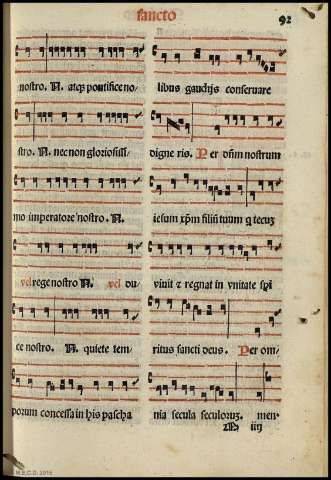 sancto
92
nostro. N. atqȝ pontifice no-
stro. N. nec non gloriosissi-
mo imperatore nostro. N.
vel rege nostro N. vel du-
ce nostro. N. quiete tem-
porum concessa in his pascha
libus gaudijs conseruare
digneris. Per dn̄m nostrum
iesum xp̄m filiū tuum q tecuȝ
viuit ⁊ regnat in vnitate spi
ritus sancti deus. Per om-
nia secula seculoruȝ. men-
M iiij